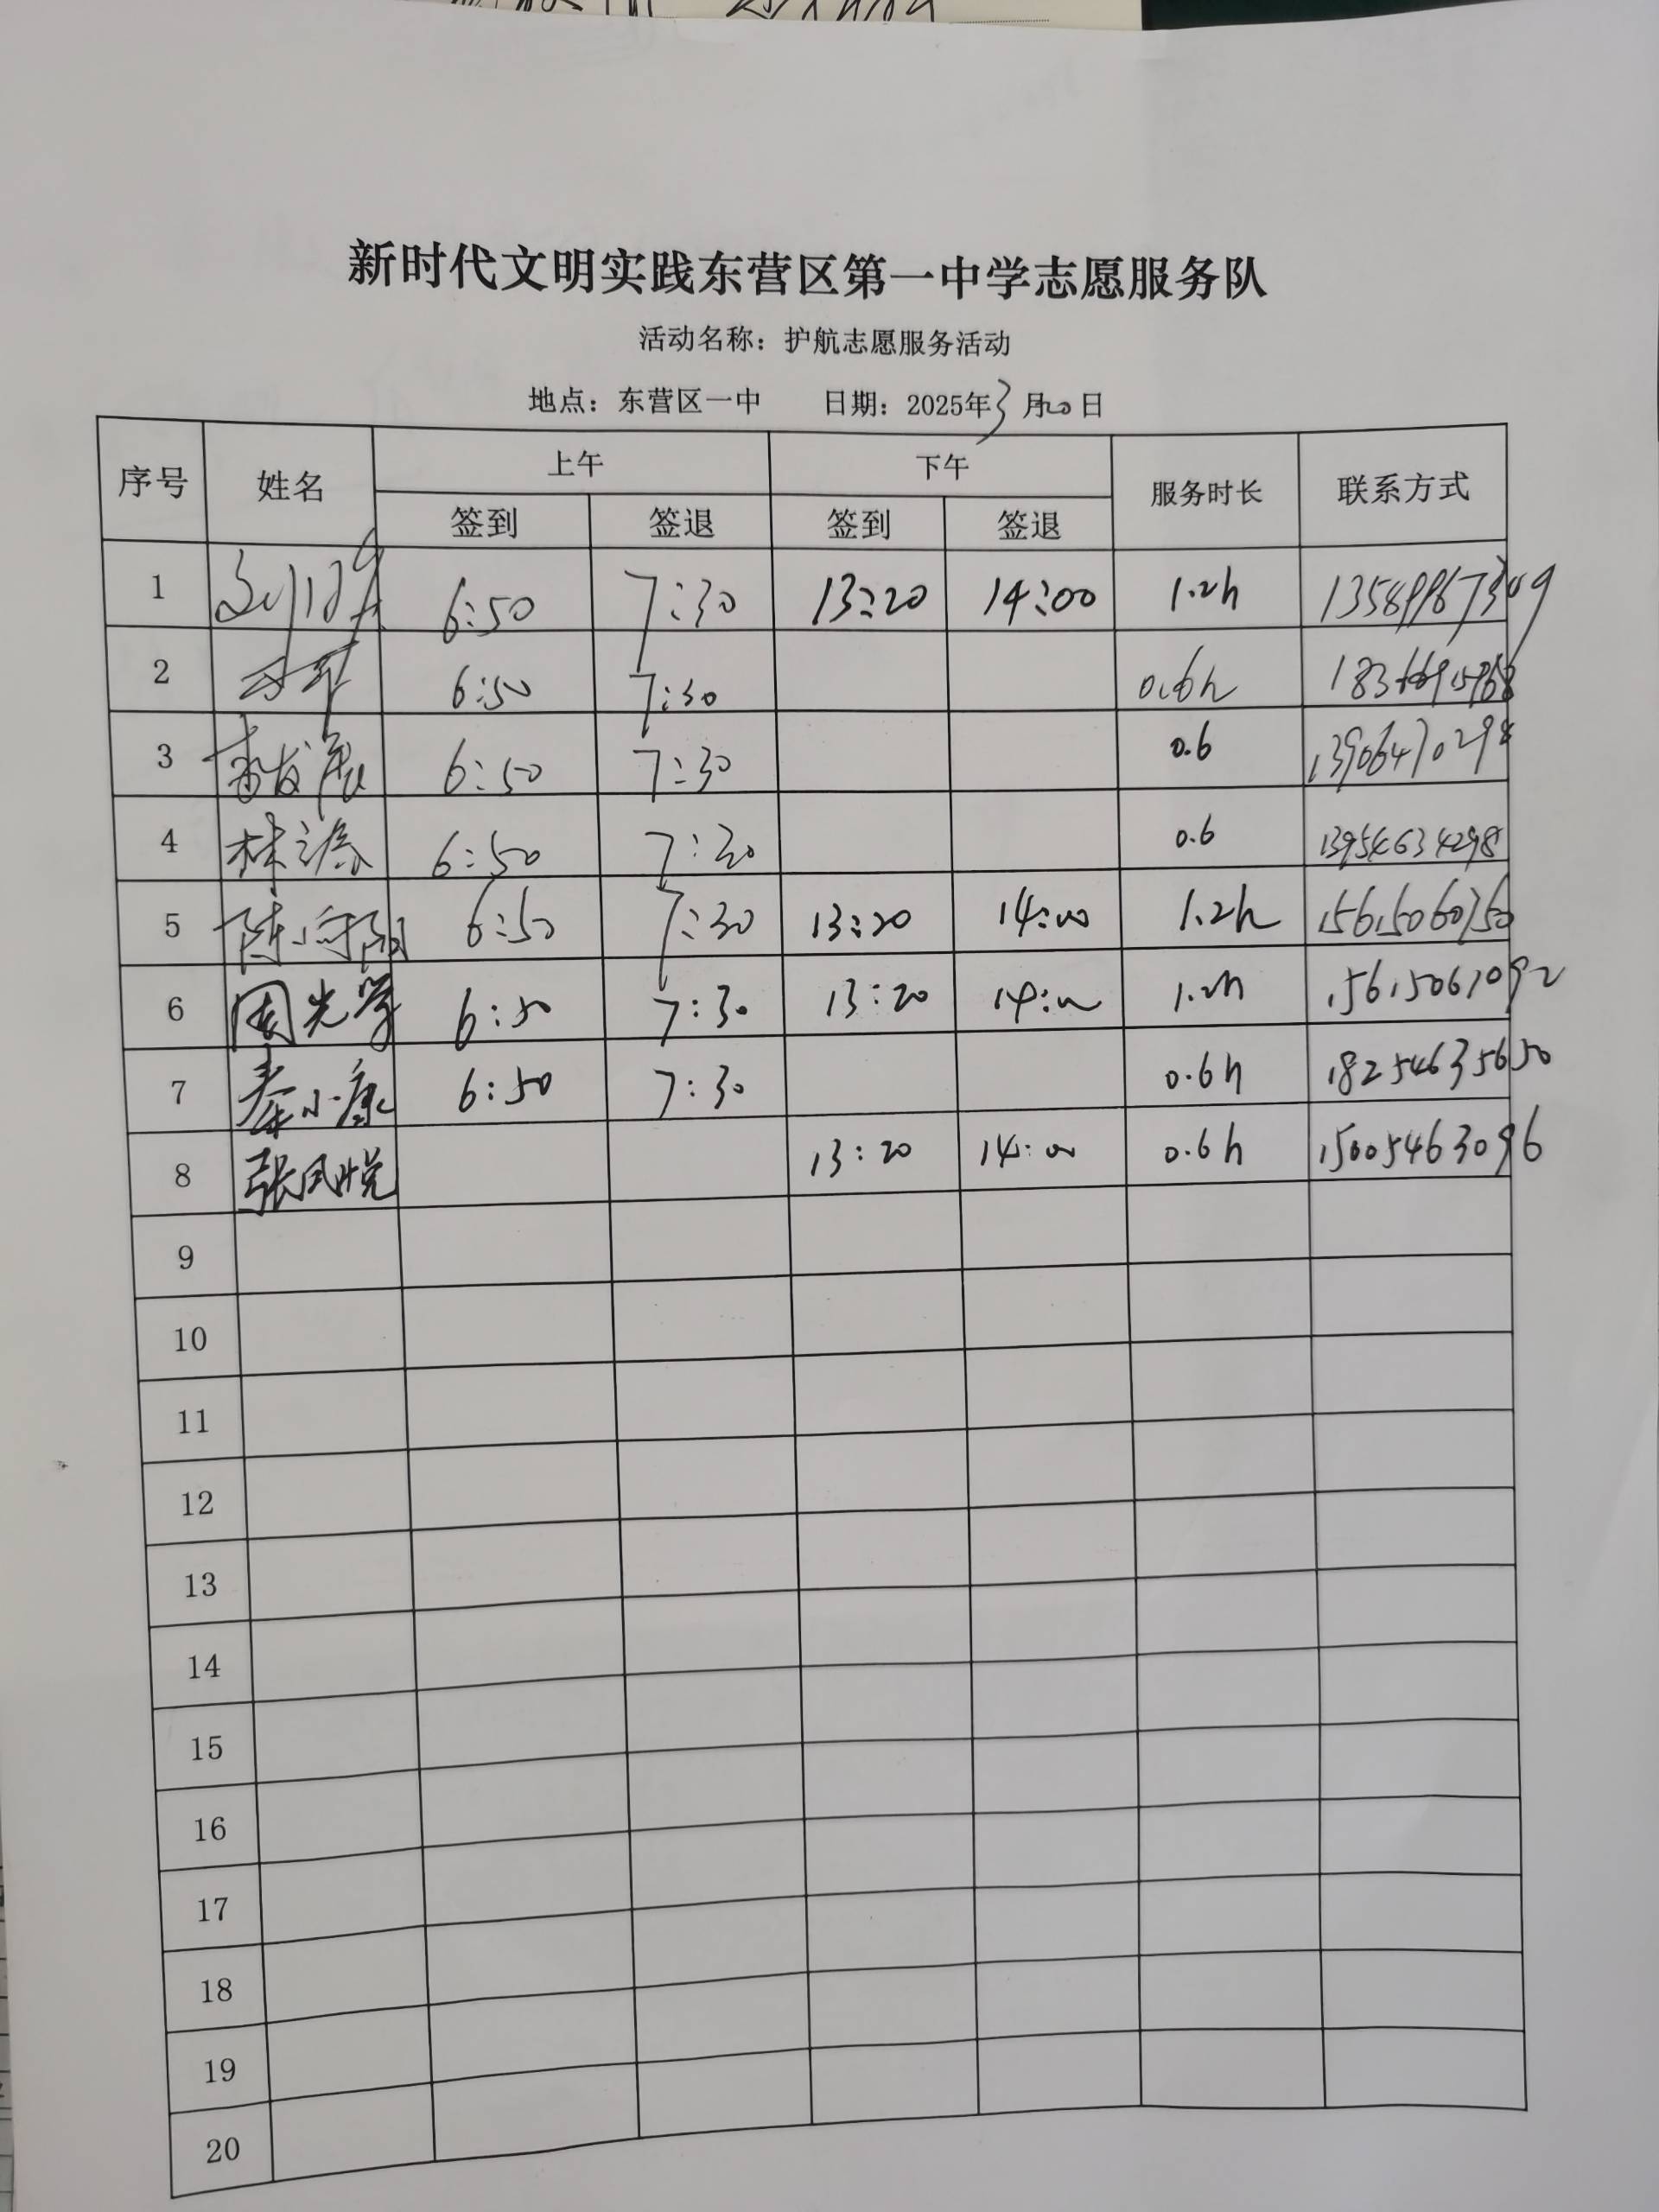 新时代文明实践东营区第一中学志愿服务队
活动名称：护航志愿服务活动
地点：东营区一中 日期：2025年3月20日
序号 姓名 上午 下午 服务时长 联系方式
签到 签退 签到 签退
1 6:50 7:30 13:20 14:00 1.2h
2 6:50 7:30 0.6h
3 李发展 6:50 7:30 0.6 13906470298
4 林涛 6:50 7:30 0.6 13954634298
5 6:50 7:30 13:20 14:00 1.2h 15615060750
6 周光学 6:50 7:30 13:20 14:00 1.2h 15615061092
7 秦小康 6:50 7:30 0.6h 18254635650
8 张凤悦 13:20 14:00 0.6h 15005463096
9
10
11
12
13
14
15
16
17
18
19
20